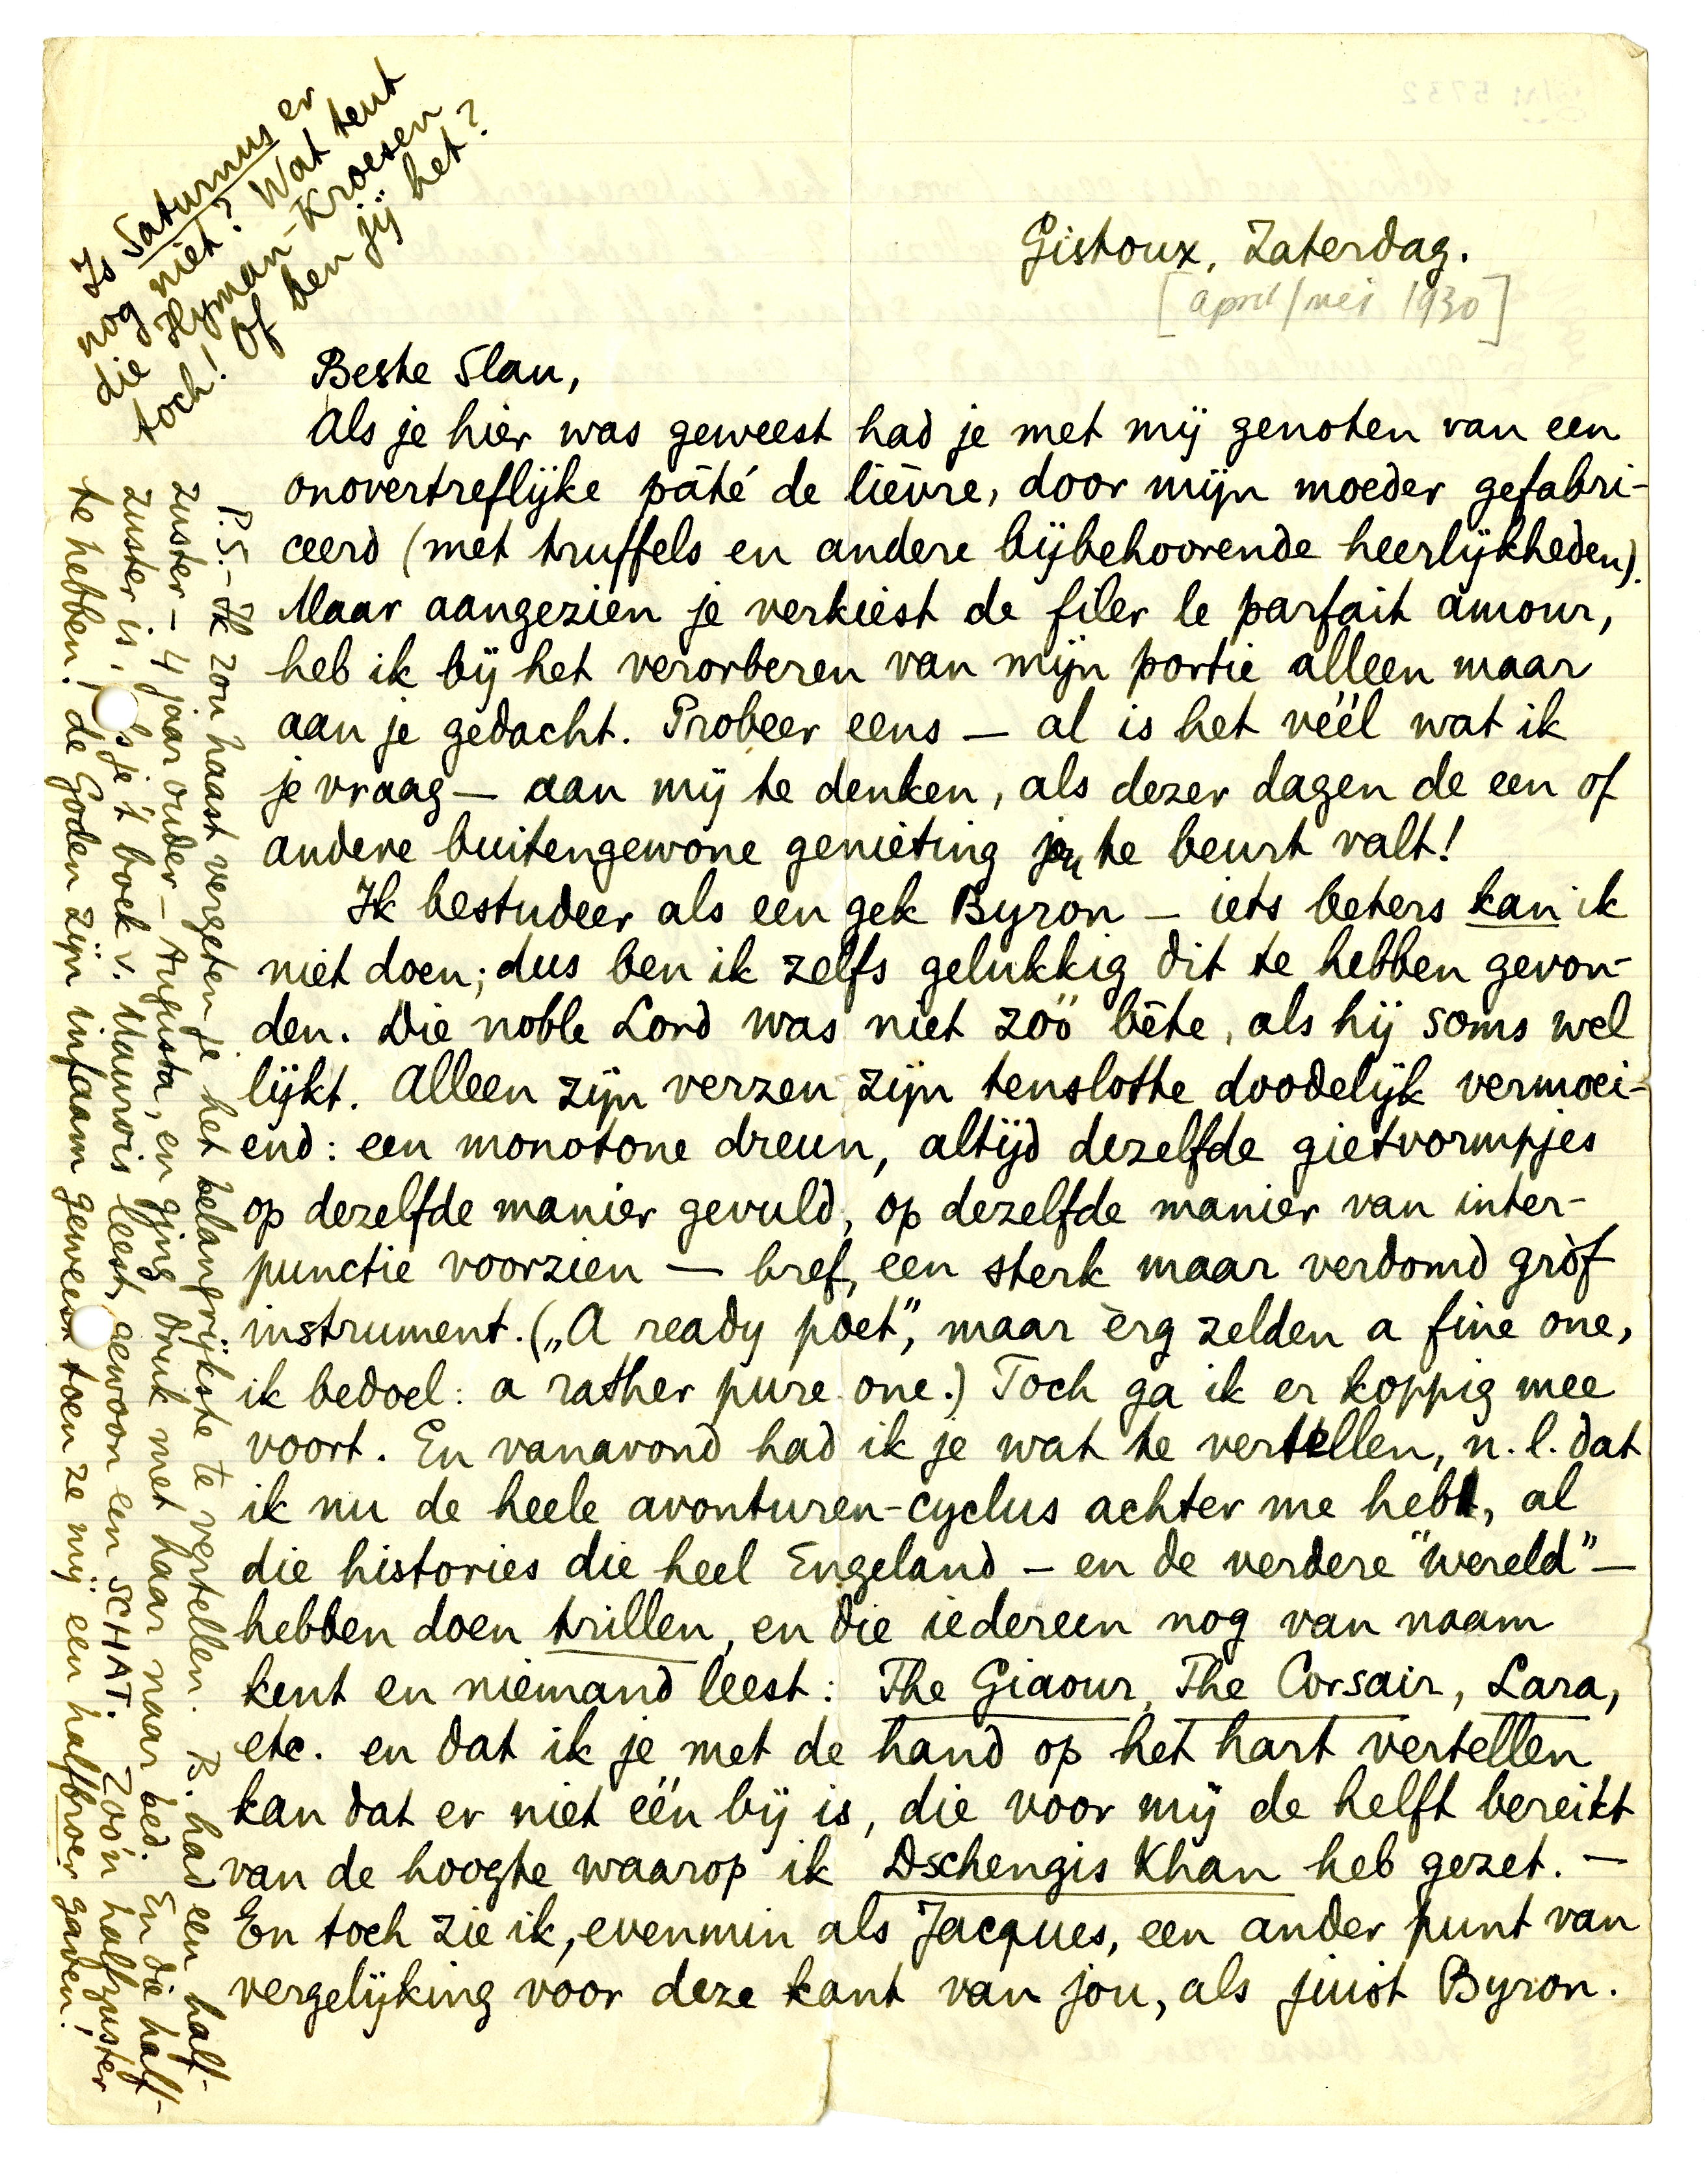 Is Saturnus er
nog niet? Wat tent
die Hyman-Kroesen
toch! Of ben jij het?
Gistoux, Zaterdag.
[april/mei 1930]
Beste Slau,
Als je hier was geweest had je met mij genoten van een
onovertreflijke pâté de lièvre, door mijn moeder gefabri-
ceerd (met truffels en andere bijbehoorende heerlijkheden).
Maar aangezien je verkiest de filer le parfait amour,
heb ik bij het verorberen van mijn portie alleen maar
aan je gedacht. Probeer eens — al is het véél wat ik
je vraag — aan mij te denken, als dezer dagen de een of
andere buitengewone genieting jou te beurt valt!
Ik bestudeer als een gek Byron — iets beters kan ik
niet doen; dus ben ik zelfs gelukkig dit te hebben gevon-
den. Die noble Lord was niet zóó bête, als hij soms wel
lijkt. Alleen zijn verzen zijn tenslotte doodelijk vermoei-
end: een monotone dreun, altijd dezelfde gietvormpjes
op dezelfde manier gevuld, op dezelfde manier van inter-
punctie voorzien — bref, een sterk maar verdomd gròf
instrument. („A ready poet”, maar èrg zelden a fine one,
ik bedoel: a rather pure one.) Toch ga ik er koppig mee
voort. En vanavond had ik je wat te vertellen, n.l. dat
ik nu de heele avonturen-cyclus achter me heb, al
die histories die heel Engeland — en de verdere "wereld" —
hebben doen trillen, en die iedereen nog van naam
kent en niemand leest: The Giaour, The Corsair, Lara,
etc. en dat ik je met de hand op het hart vertellen
kan dat er niet één bij is, die voor mij de helft bereikt
van de hoogte waarop ik Dschengis Khan heb gezet. —
En toch zie ik, evenmin als Jacques, een ander punt van
vergelijking voor deze kant van jou, als juist Byron.
P.S. - Ik zou haast vergeten je het belangrijkste te vertellen. B. had een half-
zuster – 4 jaar ouder – Augusta, en ging druk met haar naar bed. En die half-
zuster is, als je 't boek v. Maurois leest, gewoon een SCHAT. Zoo'n halfzuster
te hebben! de Goden zijn infaam geweest toen ze mij een halfbroer gaven!